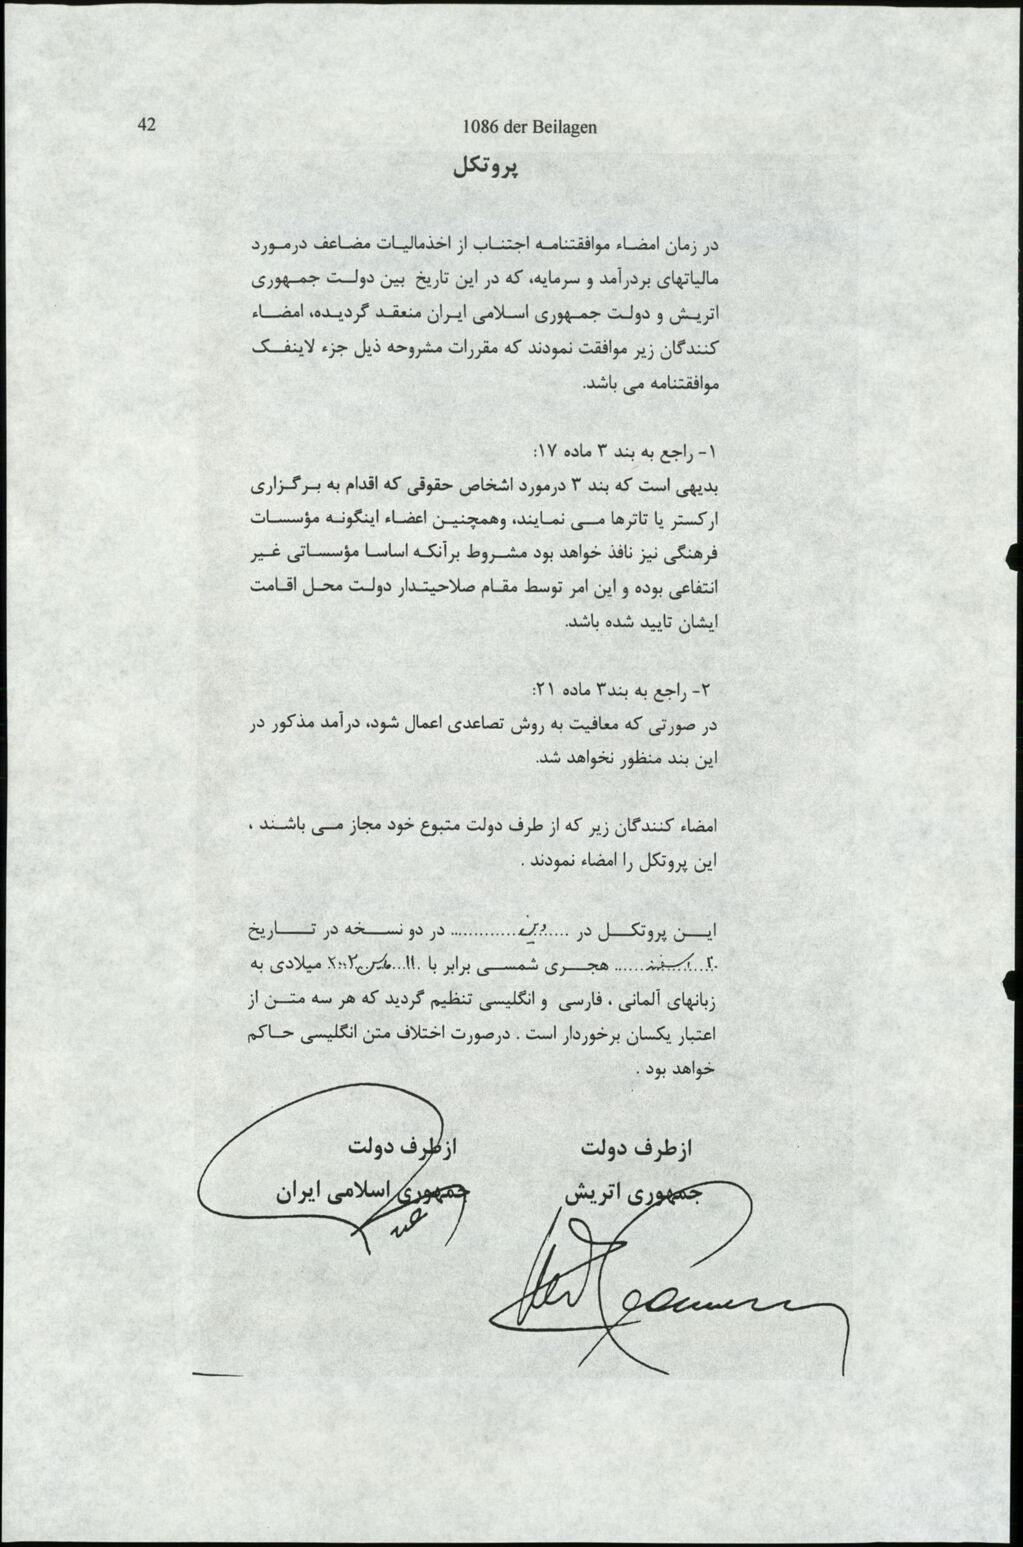 42
1086 der Beilagen
پروتکل
در زمان امضاء موافقتنامه اجتناب از اخذمالیات مضاعف درمورد
مالیاتهای بردرآمد و سرمایه، که در این تاریخ بین دولت جمهوری
اتریش و دولت جمهوری اسلامی ایران منعقد گردیده، امضاء
کنندگان زیر موافقت نمودند که مقررات مشروحه ذیل جزء لاینفک
موافقتنامه می باشد.
۱- راجع به بند ۳ ماده ۱۷:
بدیهی است که بند ۳ درمورد اشخاص حقوقی که اقدام به برگزاری
ارکستر یا تاترها می نمایند، وهمچنین اعضاء اینگونه مؤسسات
فرهنگی نیز نافذ خواهد بود مشروط برآنکه اساسا مؤسساتی غیر
انتفاعی بوده و این امر توسط مقام صلاحیتدار دولت محل اقامت
ایشان تایید شده باشد.
۲- راجع به بند۳ ماده ۲۱:
در صورتی که معافیت به روش تصاعدی اعمال شود، درآمد مذکور در
این بند منظور نخواهد شد.
امضاء کنندگان زیر که از طرف دولت متبوع خود مجاز می باشند ،
این پروتکل را امضاء نمودند .
این پروتکل در ......وین............ در دو نسخه در تاریخ
۲۰ اسفند هجری شمسی برابر با ۱۱ مارس ۲۰۰۲ میلادی به
زبانهای آلمانی ، فارسی و انگلیسی تنظیم گردید که هر سه متن از
اعتبار یکسان برخوردار است . درصورت اختلاف متن انگلیسی حاکم
خواهد بود .
ازطرف دولت
جمهوری اتریش
ازطرف دولت
جمهوری اسلامی ایران